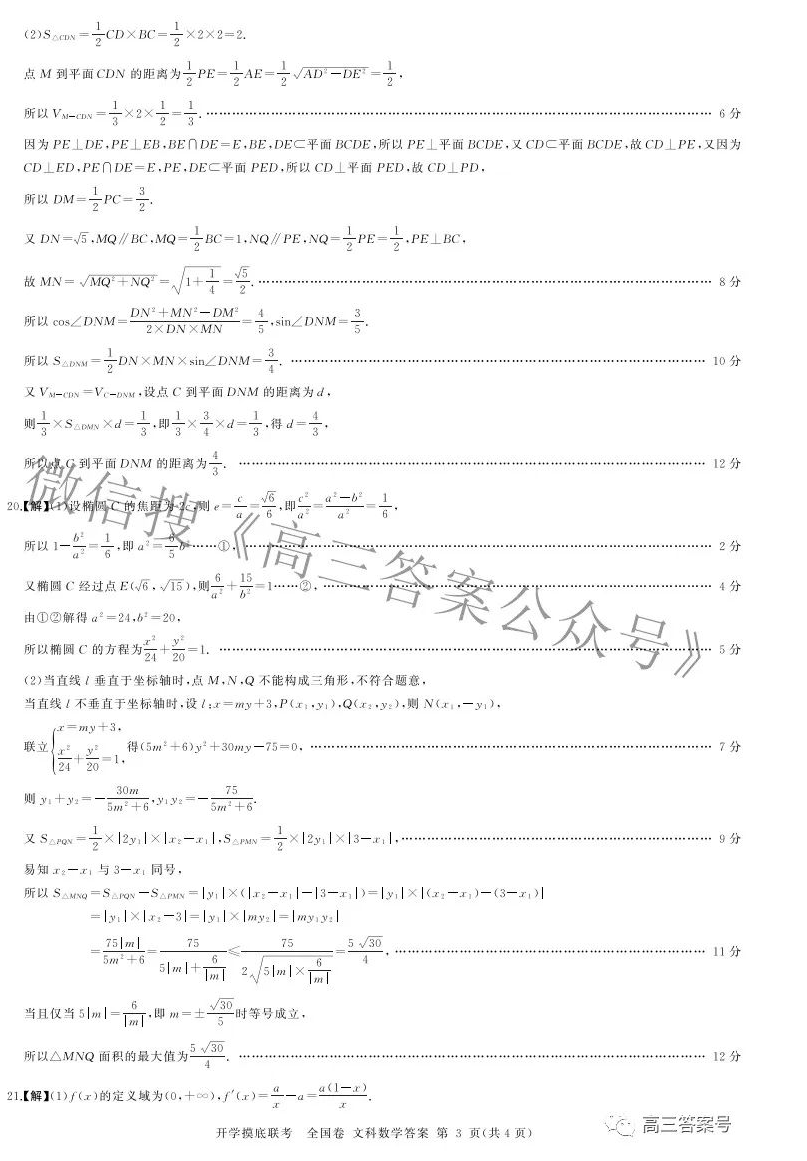 (2)S△CDN=1/2CD×BC=1/2×2×2=2.
点 M 到平面 CDN 的距离为1/2PE=1/2AE=1/2√(AD²-DE²)=1/2,
所以 V_{M-CDN}=1/3×2×1/2=1/3. …… 6 分
因为 PE⊥DE,PE⊥EB,BE∩DE=E,BE,DE⊂平面 BCDE,所以 PE⊥平面 BCDE,又 CD⊂平面 BCDE,故 CD⊥PE,又因为
CD⊥ED,PE∩DE=E,PE,DE⊂平面 PED,所以 CD⊥平面 PED,故 CD⊥PD,
所以 DM=1/2PC=3/2.
又 DN=√5,MQ∥BC,MQ=1/2BC=1,NQ∥PE,NQ=1/2PE=1/2,PE⊥BC,
故 MN=√(MQ²+NQ²)=√(1+1/4)=√5/2. …… 8 分
所以 cos∠DNM=(DN²+MN²-DM²)/(2×DN×MN)=4/5,sin∠DNM=3/5.
所以 S△DNM=1/2DN×MN×sin∠DNM=3/4. …… 10 分
又 V_{M-CDN}=V_{C-DNM},设点 C 到平面 DNM 的距离为 d,
则1/3×S△DMN×d=1/3,即1/3×3/4×d=1/3,得 d=4/3,
所以点 C 到平面 DNM 的距离为4/3. …… 12 分
20.【解】(1)设椭圆 C 的焦距为 2c,则 e=c/a=√6/6,即c²/a²=(a²-b²)/a²=1/6,
所以 1-b²/a²=1/6,即 a²=6/5b²……①, …… 2 分
又椭圆 C 经过点 E(√6,√15),则6/a²+15/b²=1……②, …… 4 分
由①②解得 a²=24,b²=20,
所以椭圆 C 的方程为x²/24+y²/20=1. …… 5 分
(2)当直线 l 垂直于坐标轴时,点 M,N,Q 不能构成三角形,不符合题意,
当直线 l 不垂直于坐标轴时,设 l:x=my+3,P(x₁,y₁),Q(x₂,y₂),则 N(x₁,-y₁),
联立{x=my+3, x²/24+y²/20=1,得(5m²+6)y²+30my-75=0, …… 7 分
则 y₁+y₂=-30m/(5m²+6),y₁y₂=-75/(5m²+6).
又 S△PQN=1/2×|2y₁|×|x₂-x₁|,S△PMN=1/2×|2y₁|×|3-x₁|, …… 9 分
易知 x₂-x₁ 与 3-x₁ 同号,
所以 S△MNQ=S△PQN-S△PMN=|y₁|×(|x₂-x₁|-|3-x₁|)=|y₁|×|(x₂-x₁)-(3-x₁)|
=|y₁|×|x₂-3|=|y₁|×|my₂|=|my₁y₂|
=75|m|/(5m²+6)=75/(5|m|+6/|m|)≤75/(2√(5|m|×6/|m|))=5√30/4, …… 11 分
当且仅当 5|m|=6/|m|,即 m=±√30/5时等号成立,
所以△MNQ 面积的最大值为5√30/4. …… 12 分
21.【解】(1)f(x)的定义域为(0,+∞),f′(x)=a/x-a=a(1-x)/x.
开学摸底联考 全国卷 文科数学答案 第 3 页(共 4 页)
微信搜《高三答案公众号》
高三答案号